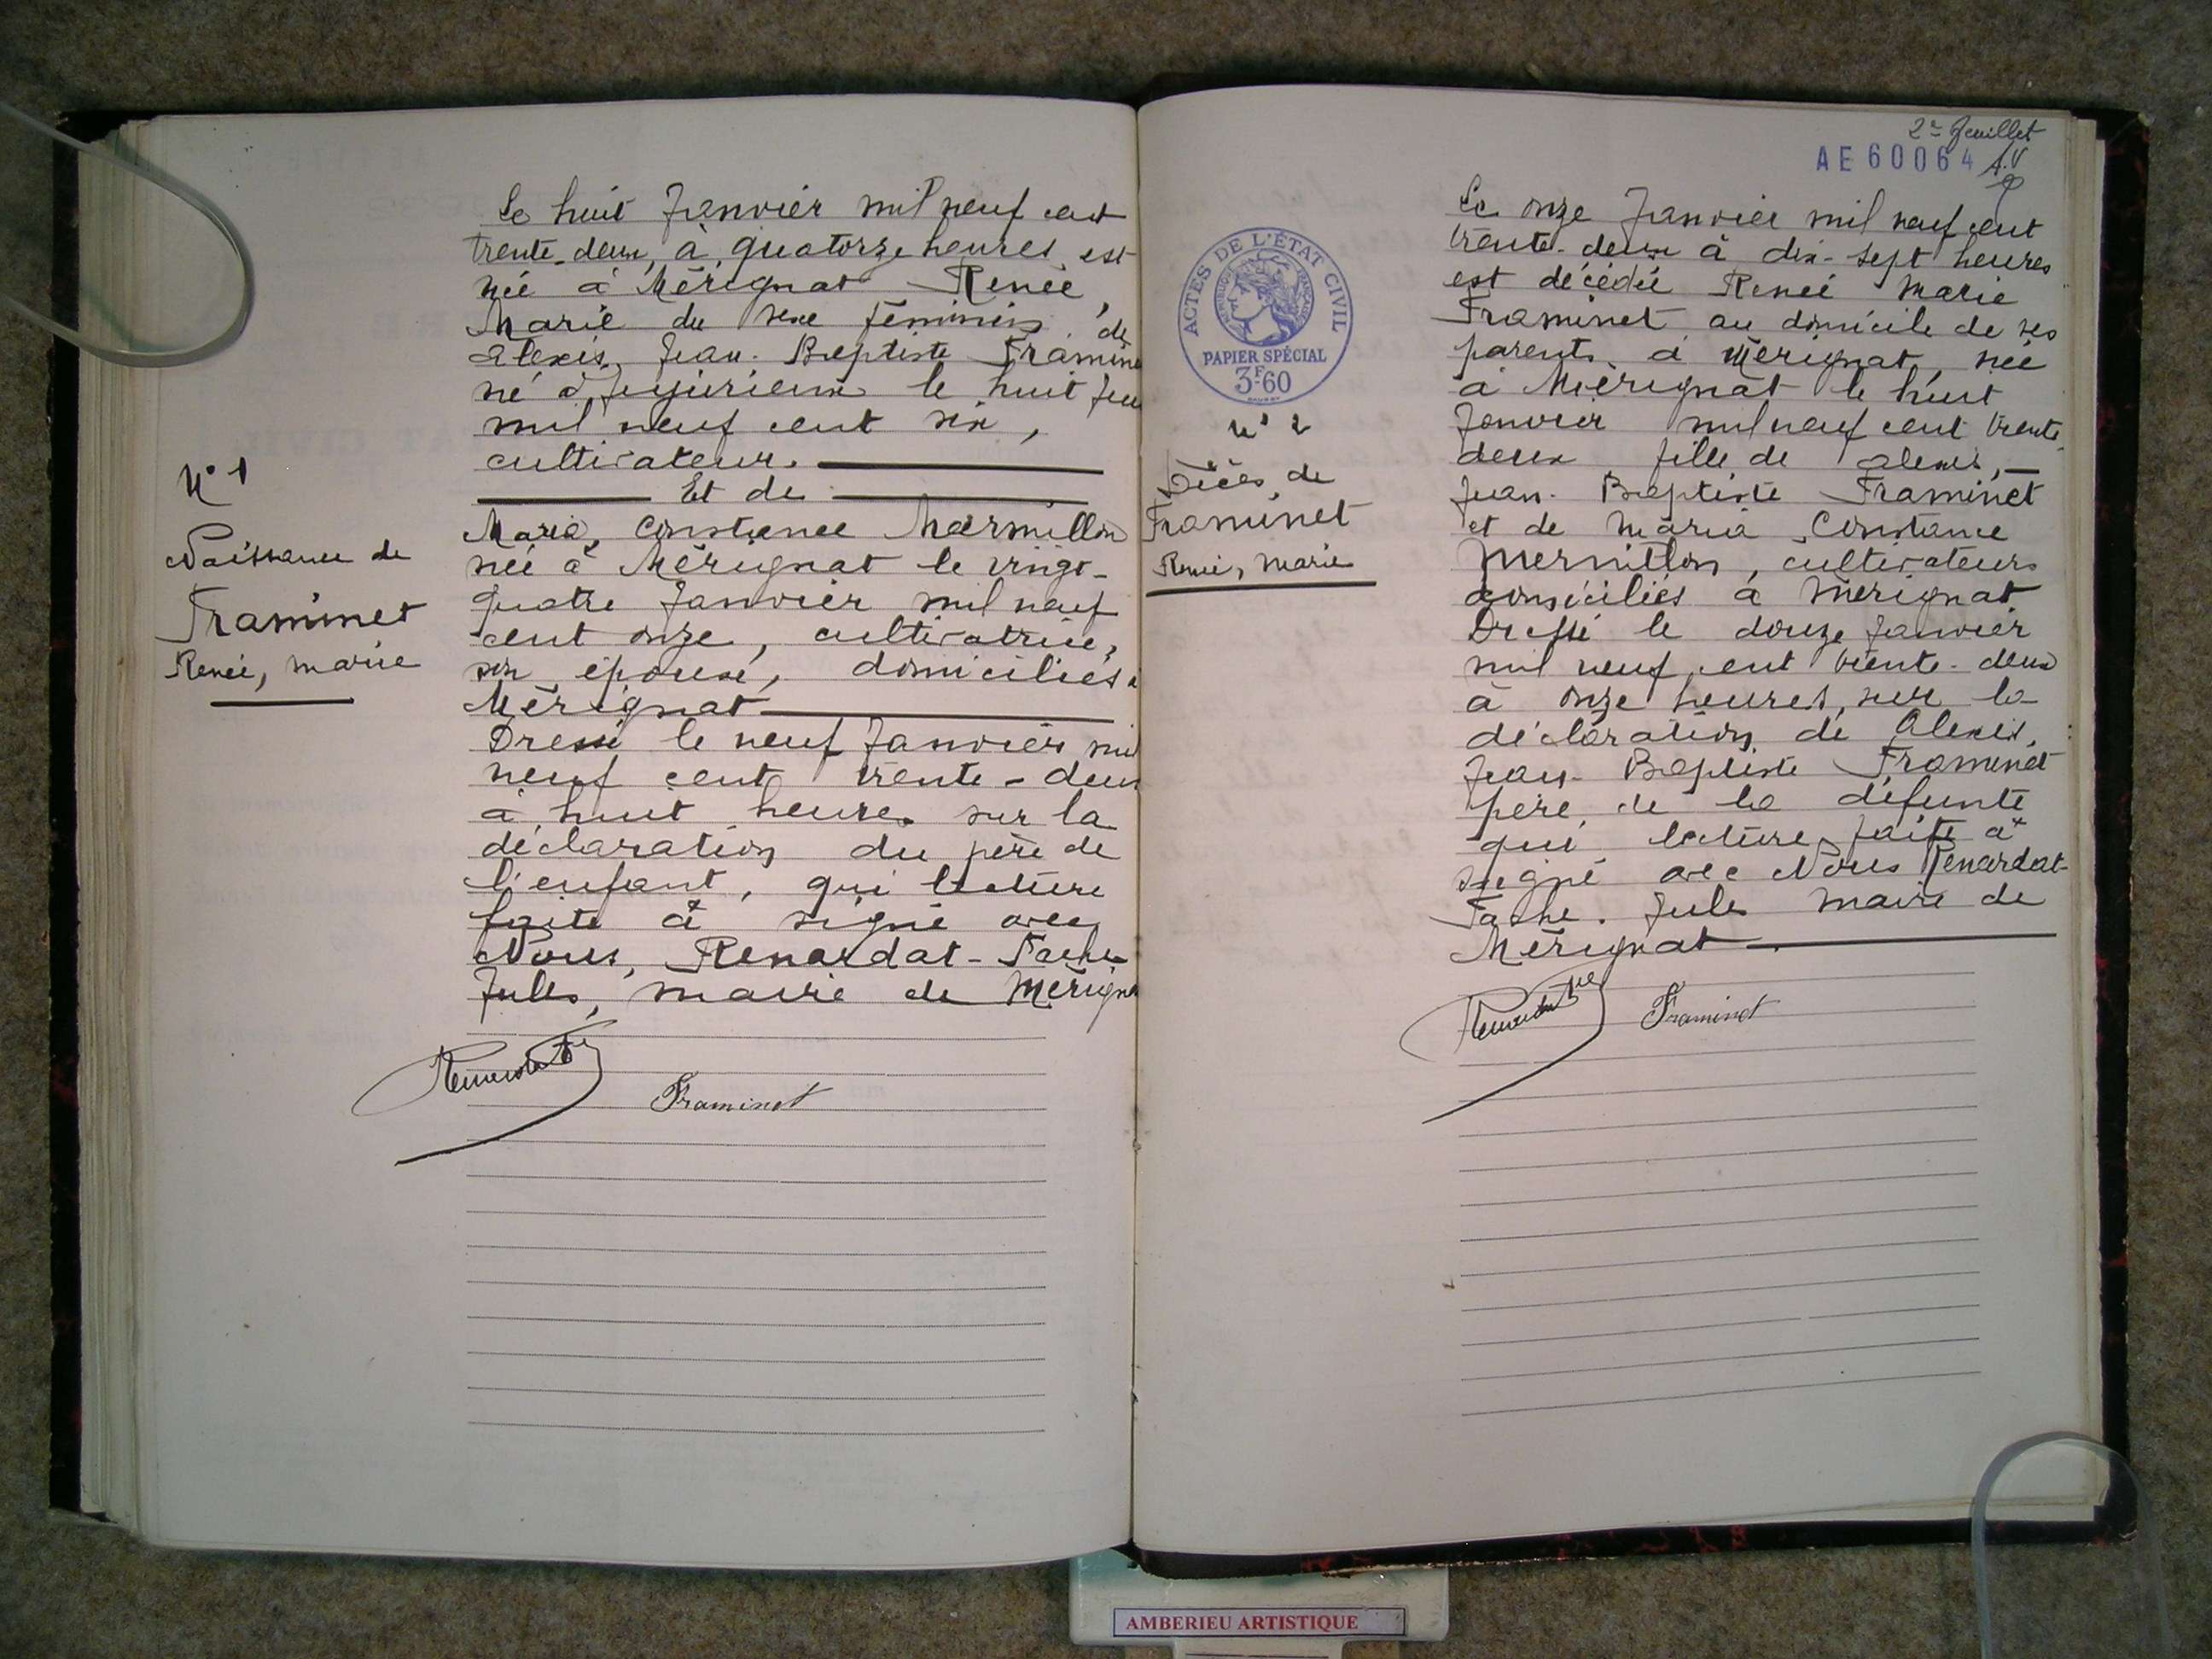 N° 1
Naissance de
Framinet
Renée, Marie
Le huit Janvier mil neuf cent
trente-deux, à quatorze heures, est
née à Mérignat Renée,
Marie du sexe féminin, de
Alexis, Jean-Baptiste Framine
né à Jujurieux le huit
mil neuf cent six,
cultivateur.
Et de
Maria, Constance Mermillon
née à Mérignat le vingt-
quatre Janvier mil neuf
cent onze, cultivatrice,
son épouse, domiciliés à
Mérignat
Dressé le neuf Janvier mil
neuf cent trente-deux
à huit heures sur la
déclaration du père de
l'enfant, qui lecture
faite a signé avec
Nous, Renardat-Fache
Jules, maire de Mérigna
Framinet
2e feuillet
AE 60064
ACTES DE L'ÉTAT CIVIL
PAPIER SPÉCIAL
3F60
N° 2
Décès de
Framinet
Renée, Marie
Le onze Janvier mil neuf cent
trente-deux à dix-sept heures
est décédée Renée Marie
Framinet au domicile de ses
parents à Mérignat, née
à Mérignat le huit
Janvier mil neuf cent trente
deux fille de Alexis,
Jean-Baptiste Framinet
et de Maria Constance
Mermillon, cultivateurs
domiciliés à Mérignat
Dressé le douze Janvier
mil neuf cent trente-deux
à onze heures, sur la
déclaration de Alexis,
Jean-Baptiste Framinet
père de la défunte
qui lecture faite a
signé avec Nous Renardat-
Fache Jules maire de
Mérignat
Framinet
AMBERIEU ARTISTIQUE